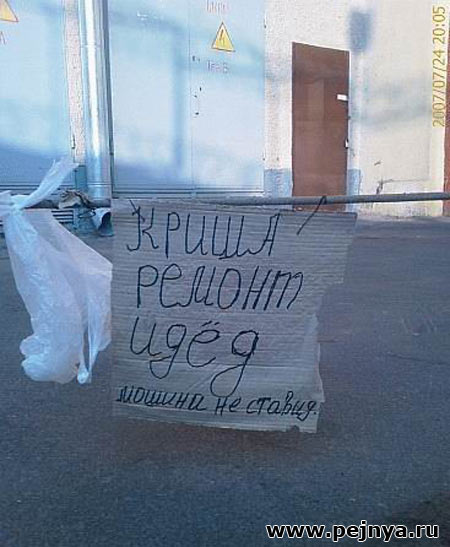 2007/07/24 20:05
КРИША
РЕМОНТ
идёд
мошина не ставид.
www.pejnya.ru